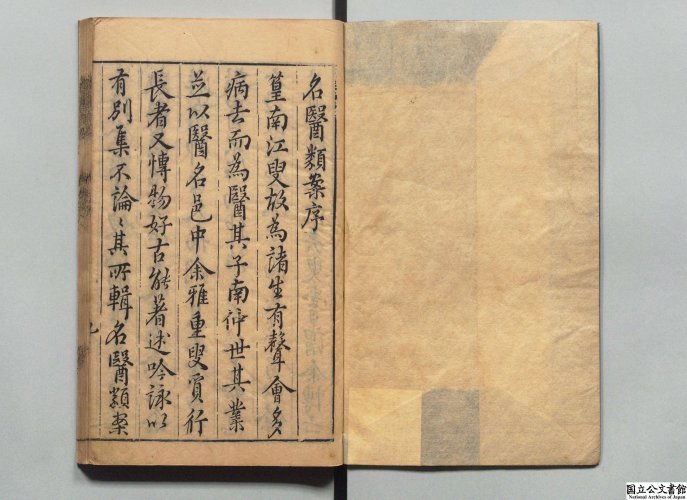 名醫類案序
篁南江叟故為諸生有聲會多
病去而為醫其子南仲世其業
並以醫名邑中余雅重叟質行
長者又博物好古能著述吟詠以
有別集不論〻其所輯名醫類案
国立公文書館
National Archives of Japan